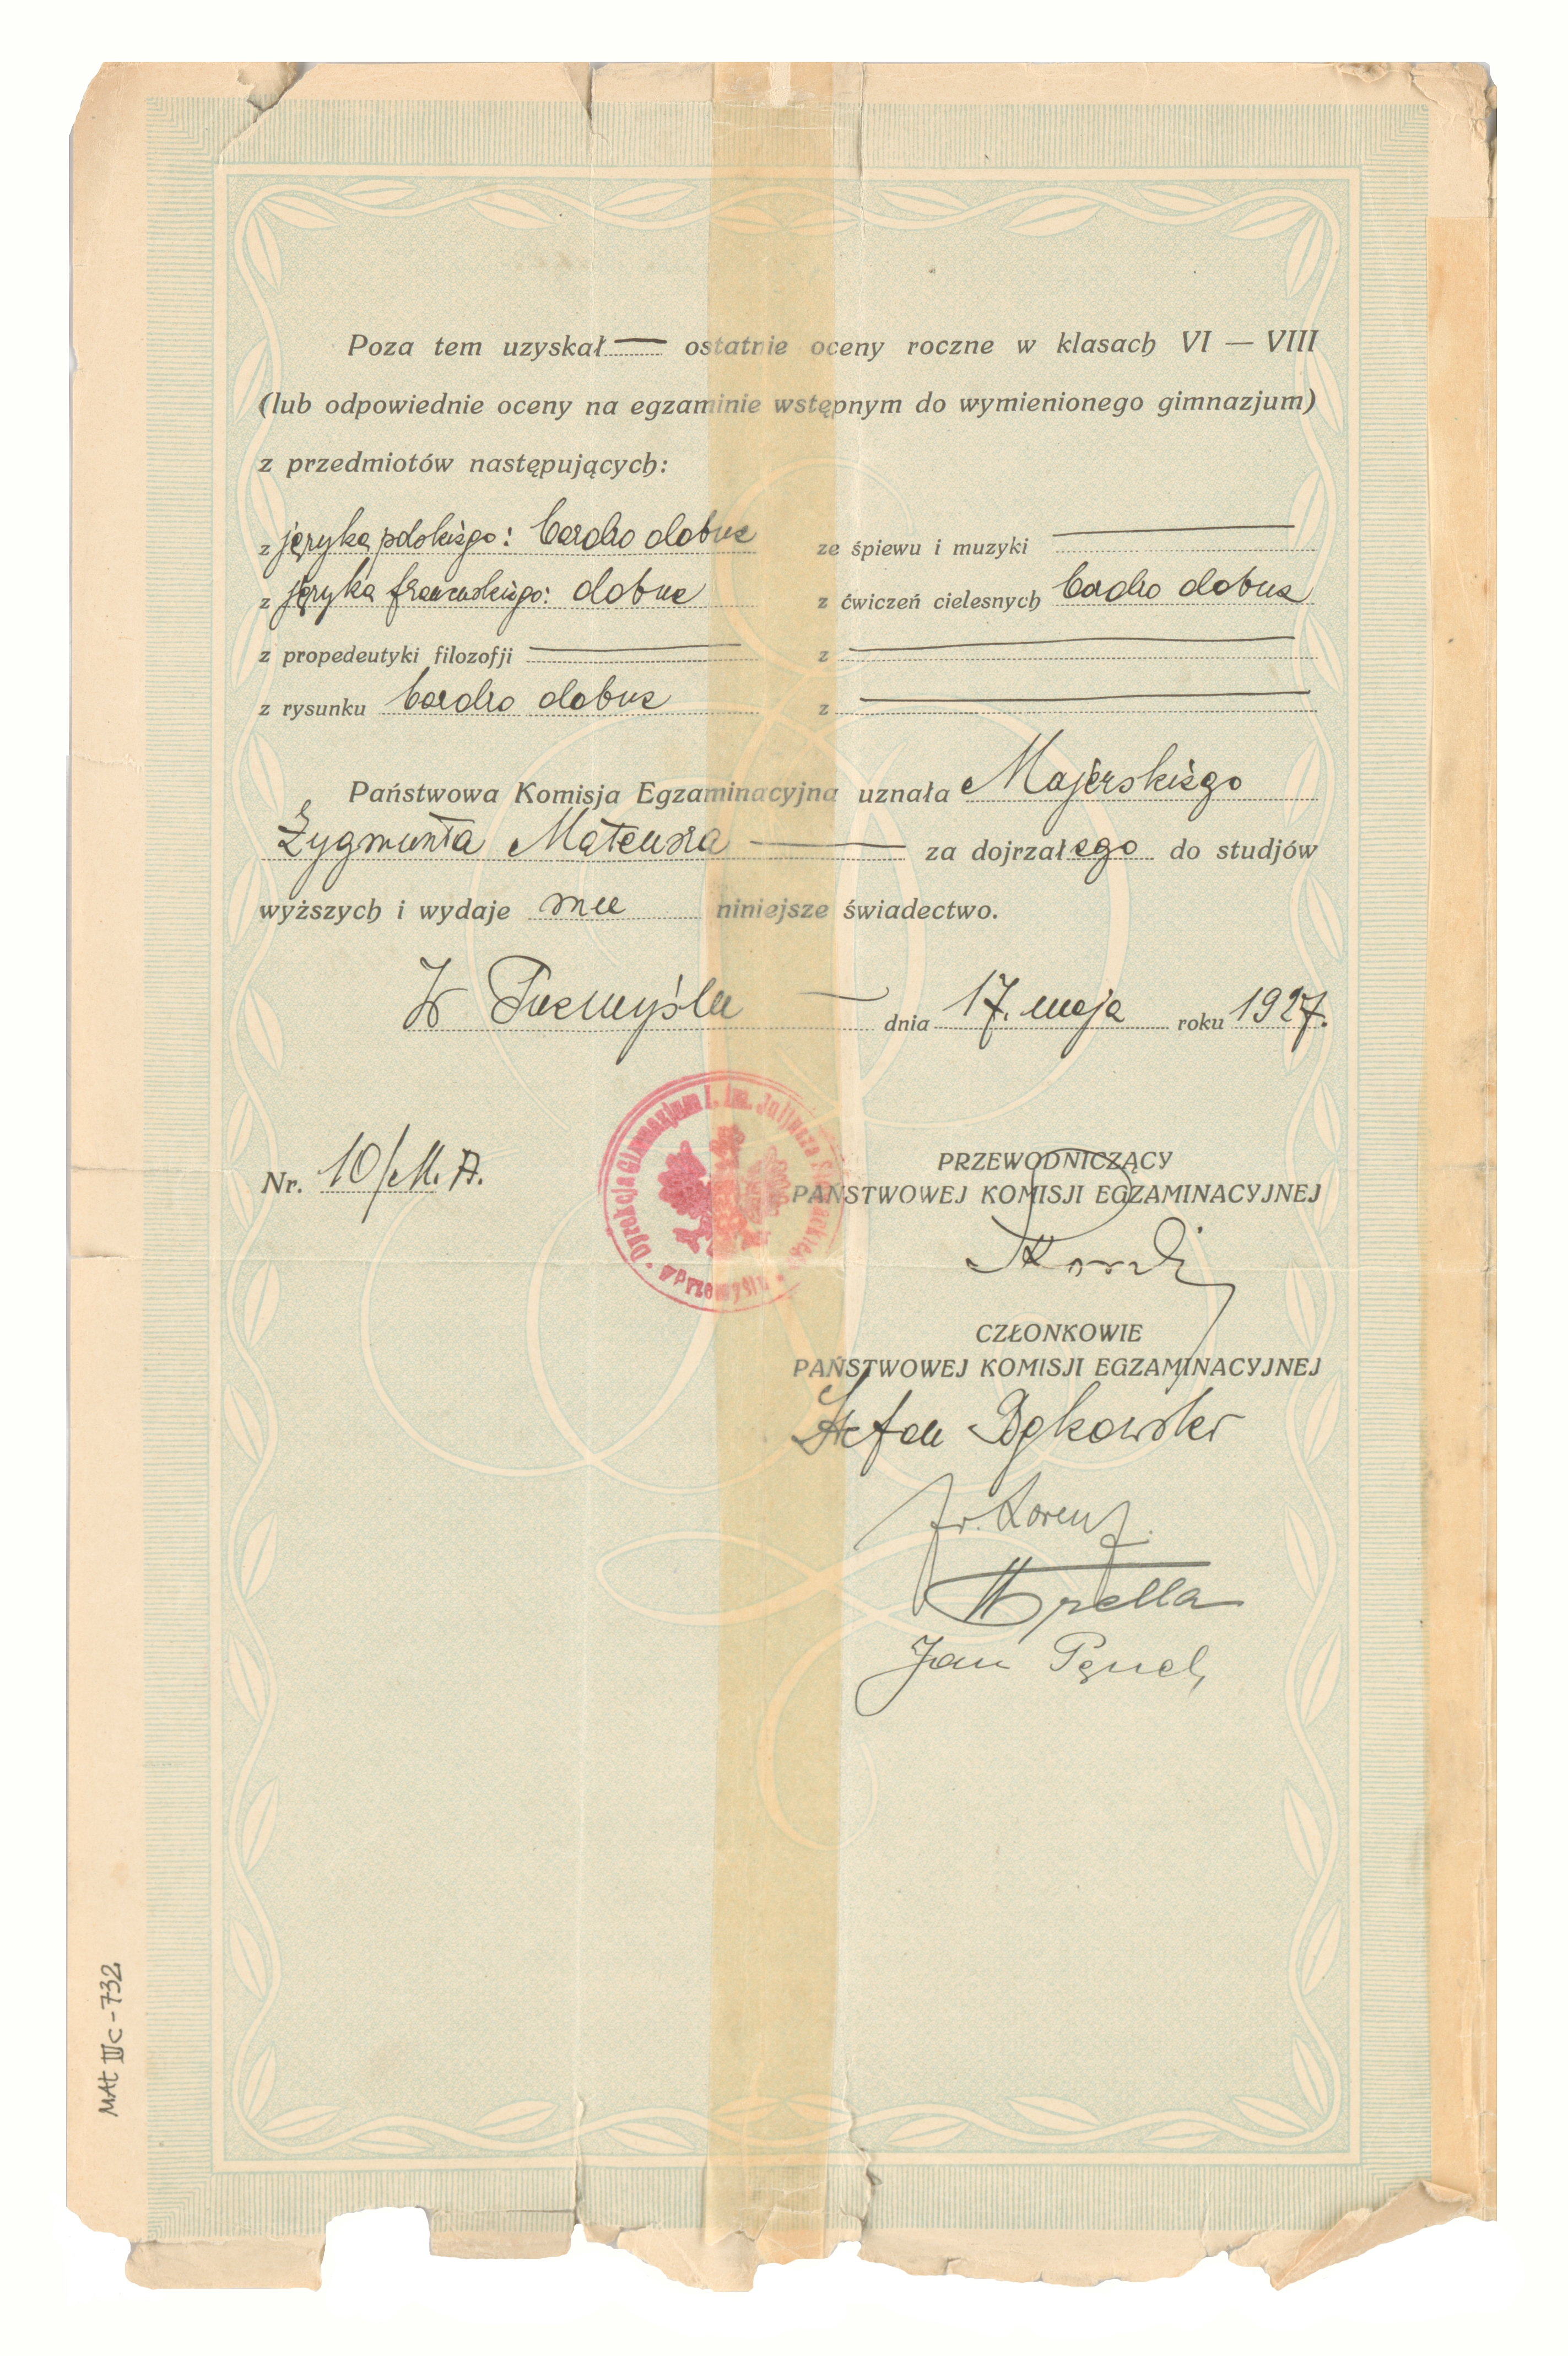 Poza tem uzyskał — ostatnie oceny roczne w klasach VI — VIII
(lub odpowiednie oceny na egzaminie wstępnym do wymienionego gimnazjum)
z przedmiotów następujących:
z języka polskiego: bardzo dobre
ze śpiewu i muzyki —
z języka francuskiego: dobre
z ćwiczeń cielesnych bardzo dobre
z propedeutyki filozofji —
z —
z rysunku bardzo dobre
z —
Państwowa Komisja Egzaminacyjna uznała Majerskiego
Zygmunta Mateusza — za dojrzałego do studjów
wyższych i wydaje mu niniejsze świadectwo.
W Przemyślu — dnia 17. maja roku 1927.
Dyrekcja Gimnazjum I. im. Juljusza Słowackiego w Przemyślu
Nr. 10/M. A.
PRZEWODNICZĄCY
PAŃSTWOWEJ KOMISJI EGZAMINACYJNEJ
CZŁONKOWIE
PAŃSTWOWEJ KOMISJI EGZAMINACYJNEJ
Stefan
Fr. Lorenz.
Jan
MAt IIIc - 732